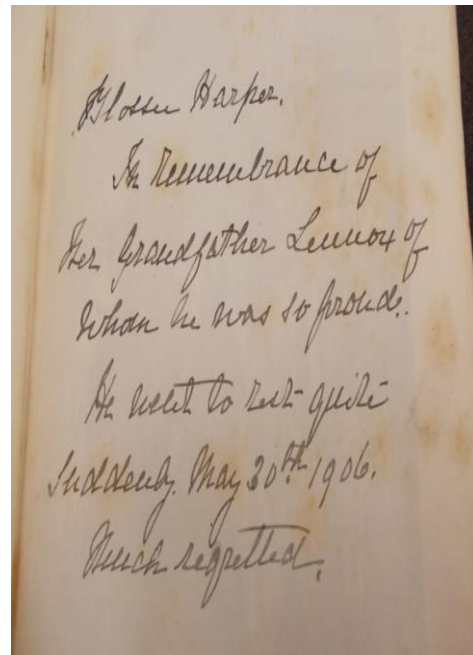 Harper.
In remembrance of
Her Grandfather Lennox of
Whom he was so proud.
He went to rest quite
Suddenly. May 30th 1906.
Much regretted.